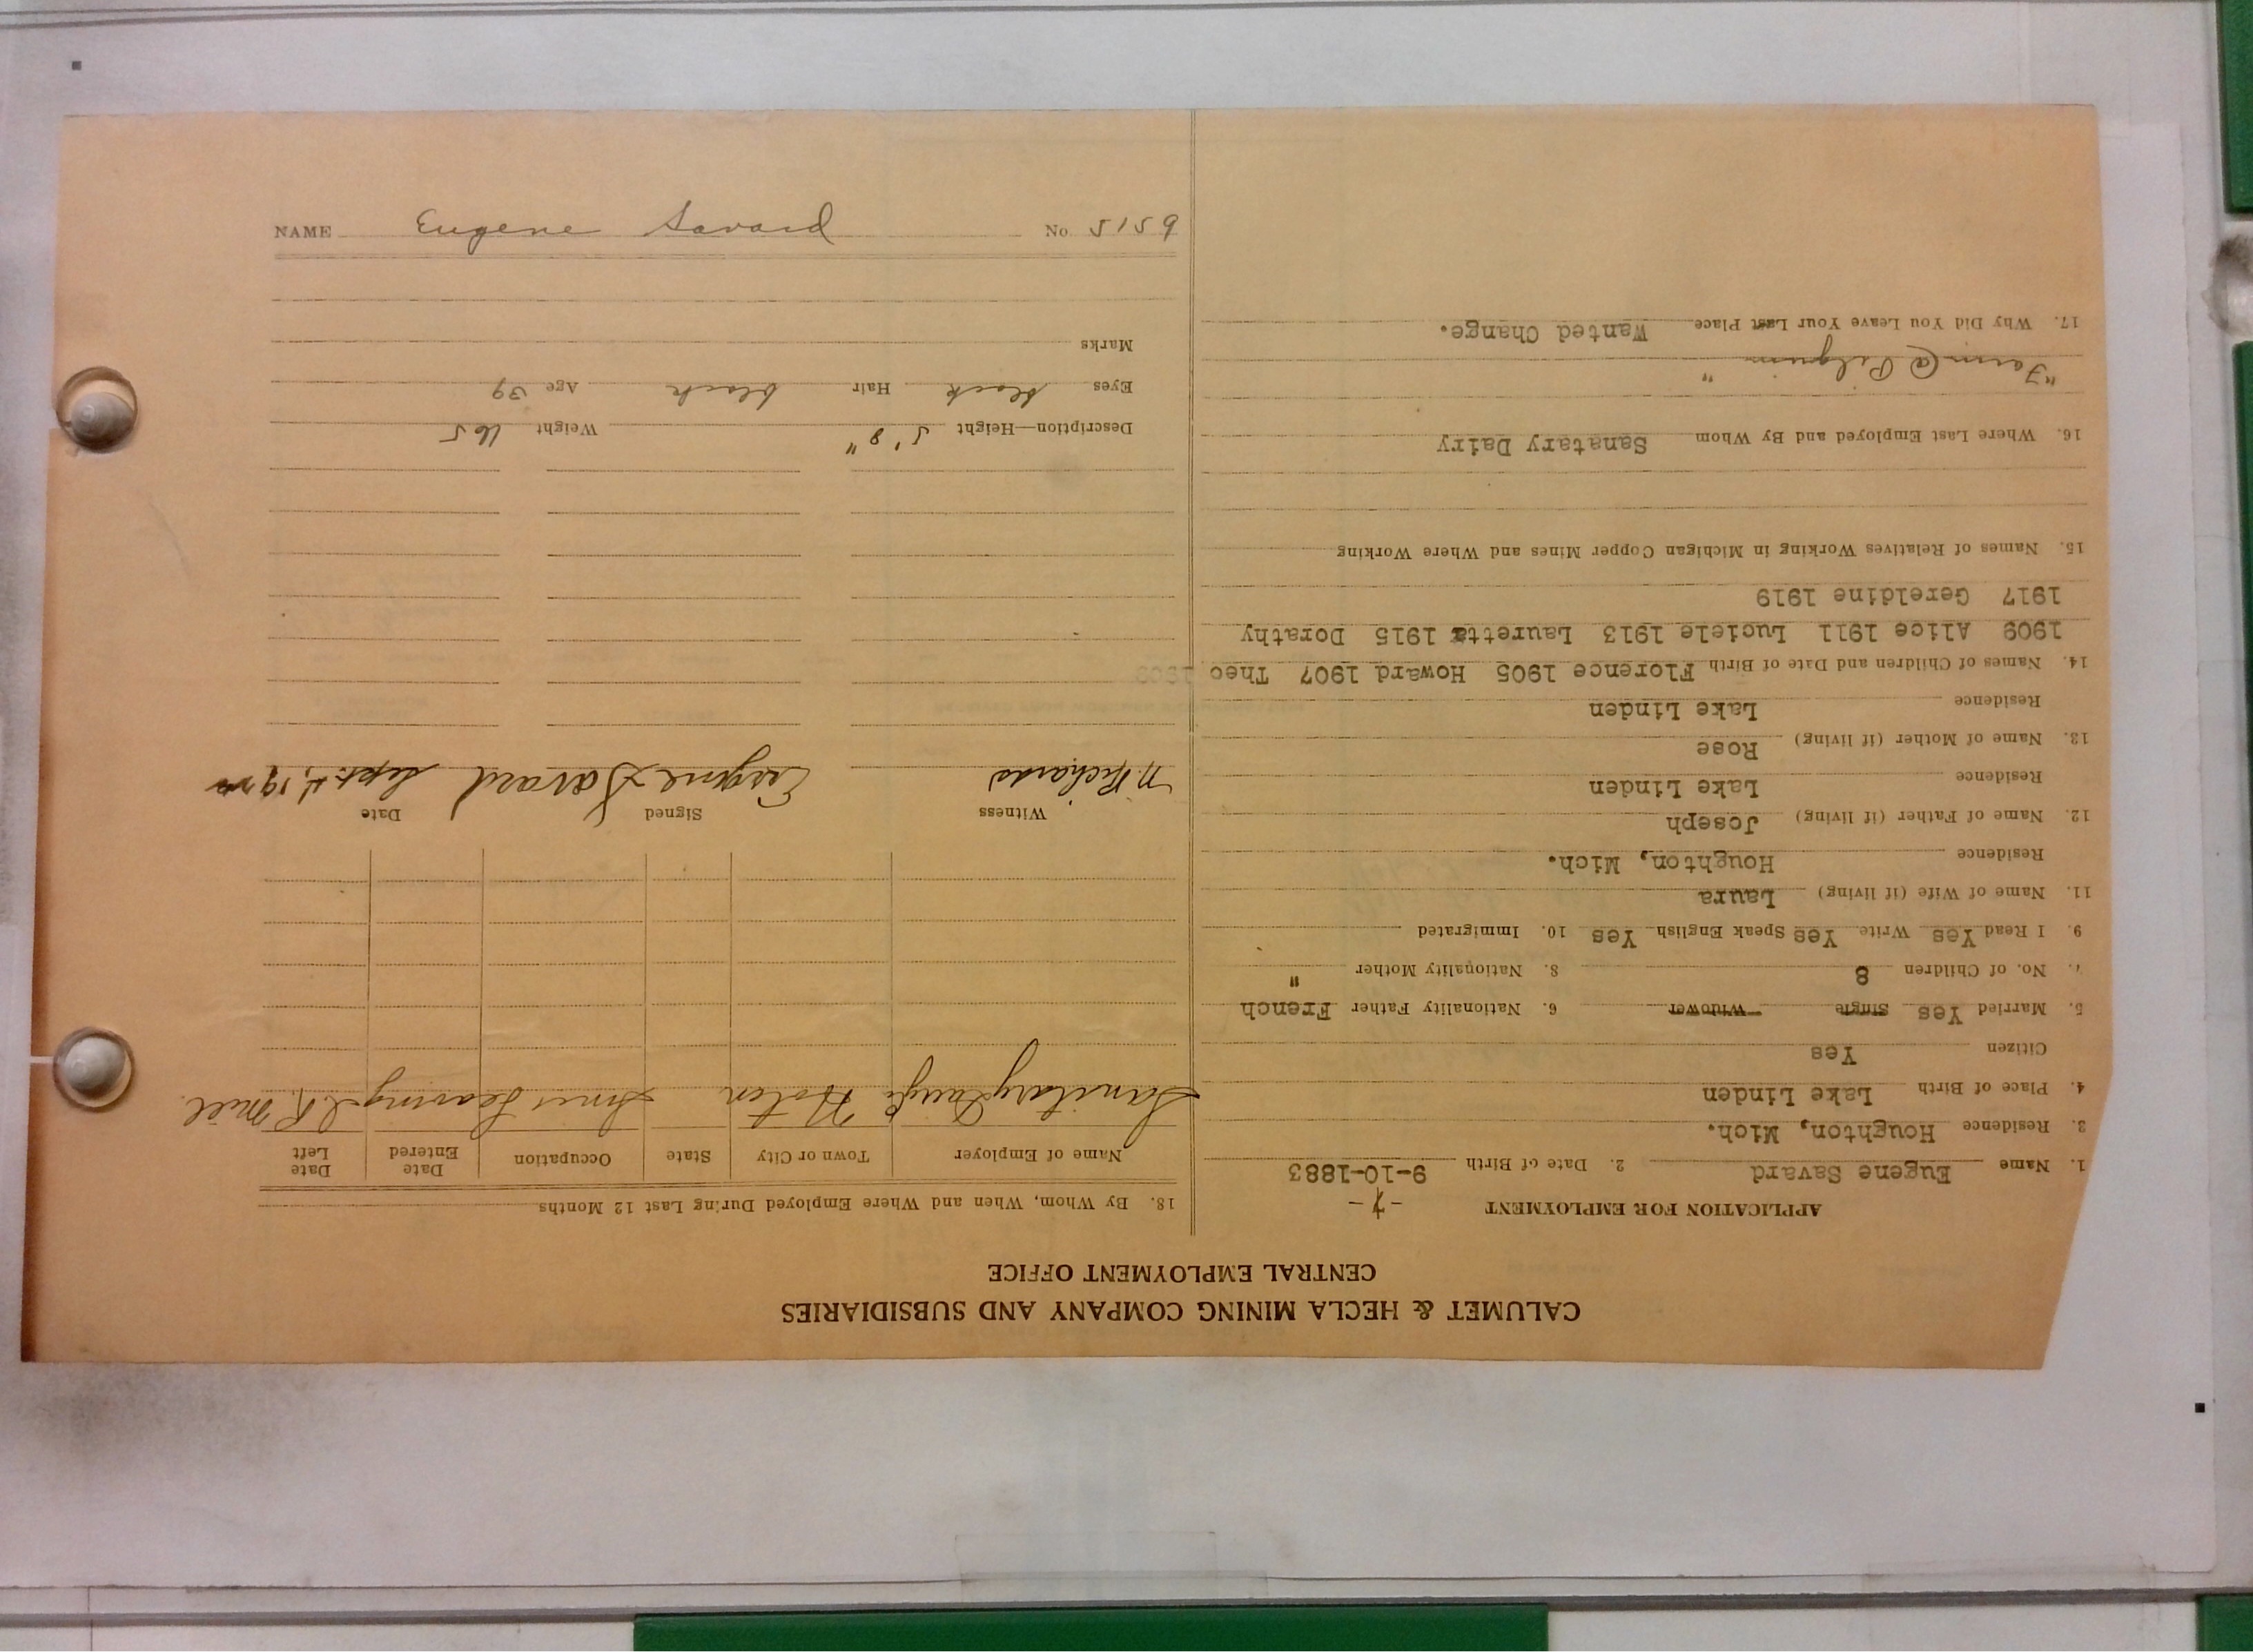 NAME Eugene Savard No. 5159
CALUMET & HECLA MINING COMPANY AND SUBSIDIARIES
CENTRAL EMPLOYMENT OFFICE
APPLICATION FOR EMPLOYMENT -7-
1. Name Eugene Savard 2. Date of Birth 9-10-1883
3. Residence Houghton, Mich.
4. Place of Birth Lake Linden
Citizen Yes
5. Married Yes Single Widower 6. Nationality Father French
7. No. of Children 8 8. Nationality Mother "
9. I Read Yes Write Yes Speak English Yes 10. Immigrated
11. Name of Wife (if living) Laura
Residence Houghton, Mich.
12. Name of Father (if living) Joseph
Residence Lake Linden
13. Name of Mother (if living) Rose
Residence Lake Linden
14. Names of Children and Date of Birth Florence 1905 Howard 1907 Theo 1909
1909 Alice 1911 Luciele 1913 Lauretta 1915 Dorathy
1917 Gereldine 1919
15. Names of Relatives Working in Michigan Copper Mines and Where Working
16. Where Last Employed and By Whom Sanatary Dairy
"Farm @ Pilgrim"
17. Why Did You Leave Your Last Place Wanted Change.
18. By Whom, When and Where Employed During Last 12 Months
Name of Employer Town or City State Occupation Date Entered Date Left
Sanitary Hoton Since Leaving Mill
Witness Signed Date
Richards Eugene Savard Sept.
Description—Height 5' 8" Weight 165
Eyes black Hair black Age 39
Marks